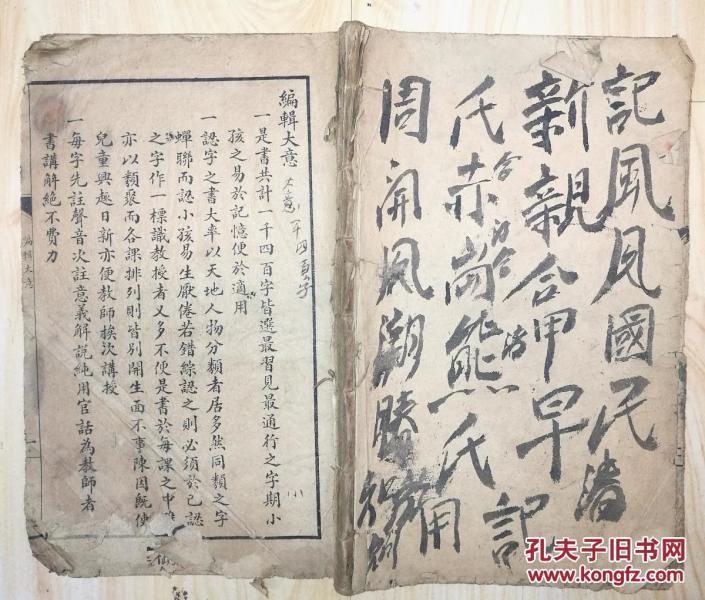 記風月國民
新親合甲早記
氏赤崗熊氏用
周開風湖勝
編輯大意
一是書共計一千四百字皆選最習見最通行之字期小
孩之易於記憶便於適用
一認字之書大率以天地人物分類者居多然同類之字
蟬聯而認小孩易生厭倦若錯綜認之則必須於已認
之字作一標識教授者又多不便是書於每課之中
亦以類聚而各課排列則皆別開生面不事陳因既使
兒童興趣日新亦便教師挨次講授
一每字先註聲音次註意義解說純用官話為教師者
書講解絕不費力
編輯大意
孔夫子旧书网
www.kongfz.com